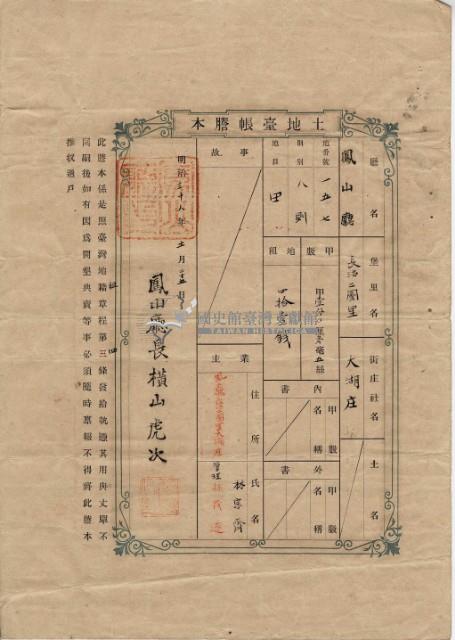 本謄帳臺地土
廳名
鳳山廳
堡里名
長治二圖里
街庄社名
大湖庄
土名
地番號
一五七
則別
八則
地目
田
甲數
地租
四拾壹錢
內書
甲數
名稱
外書
甲數
名稱
事故
業主
住所
氏名
管理
林
明治三十八年
月
鳳山廳長橫山虎次
此謄本係是照臺灣地籍章程第三條發給執憑其用與丈單不
同嗣後如有因爲開墾典賣等事必須隨時稟報不得將此謄本
推收過戶
國史館臺灣文獻館
TAIWAN HISTORICA